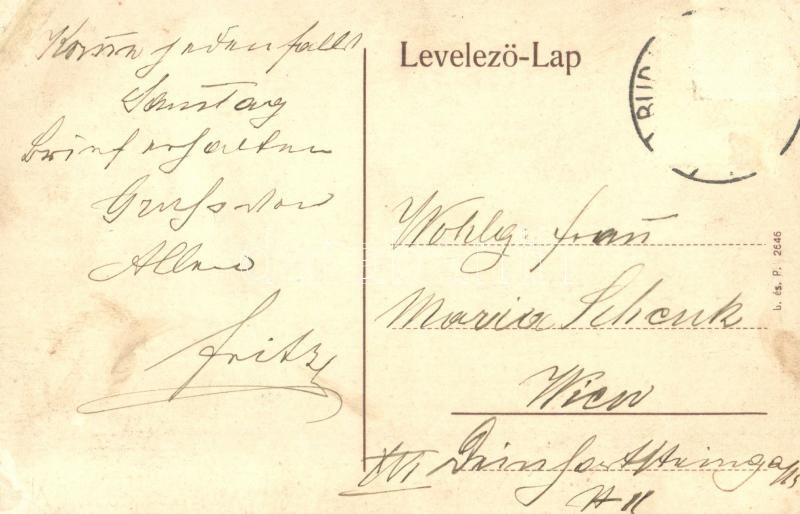 Komme jedenfalls
Samstag
Brief erhalten
Gruss von
Allen
Fritz
Levelezö-Lap
BUD
Wohlg frau
Maria Schenk
Wien
XVI
b. és. P. 2646